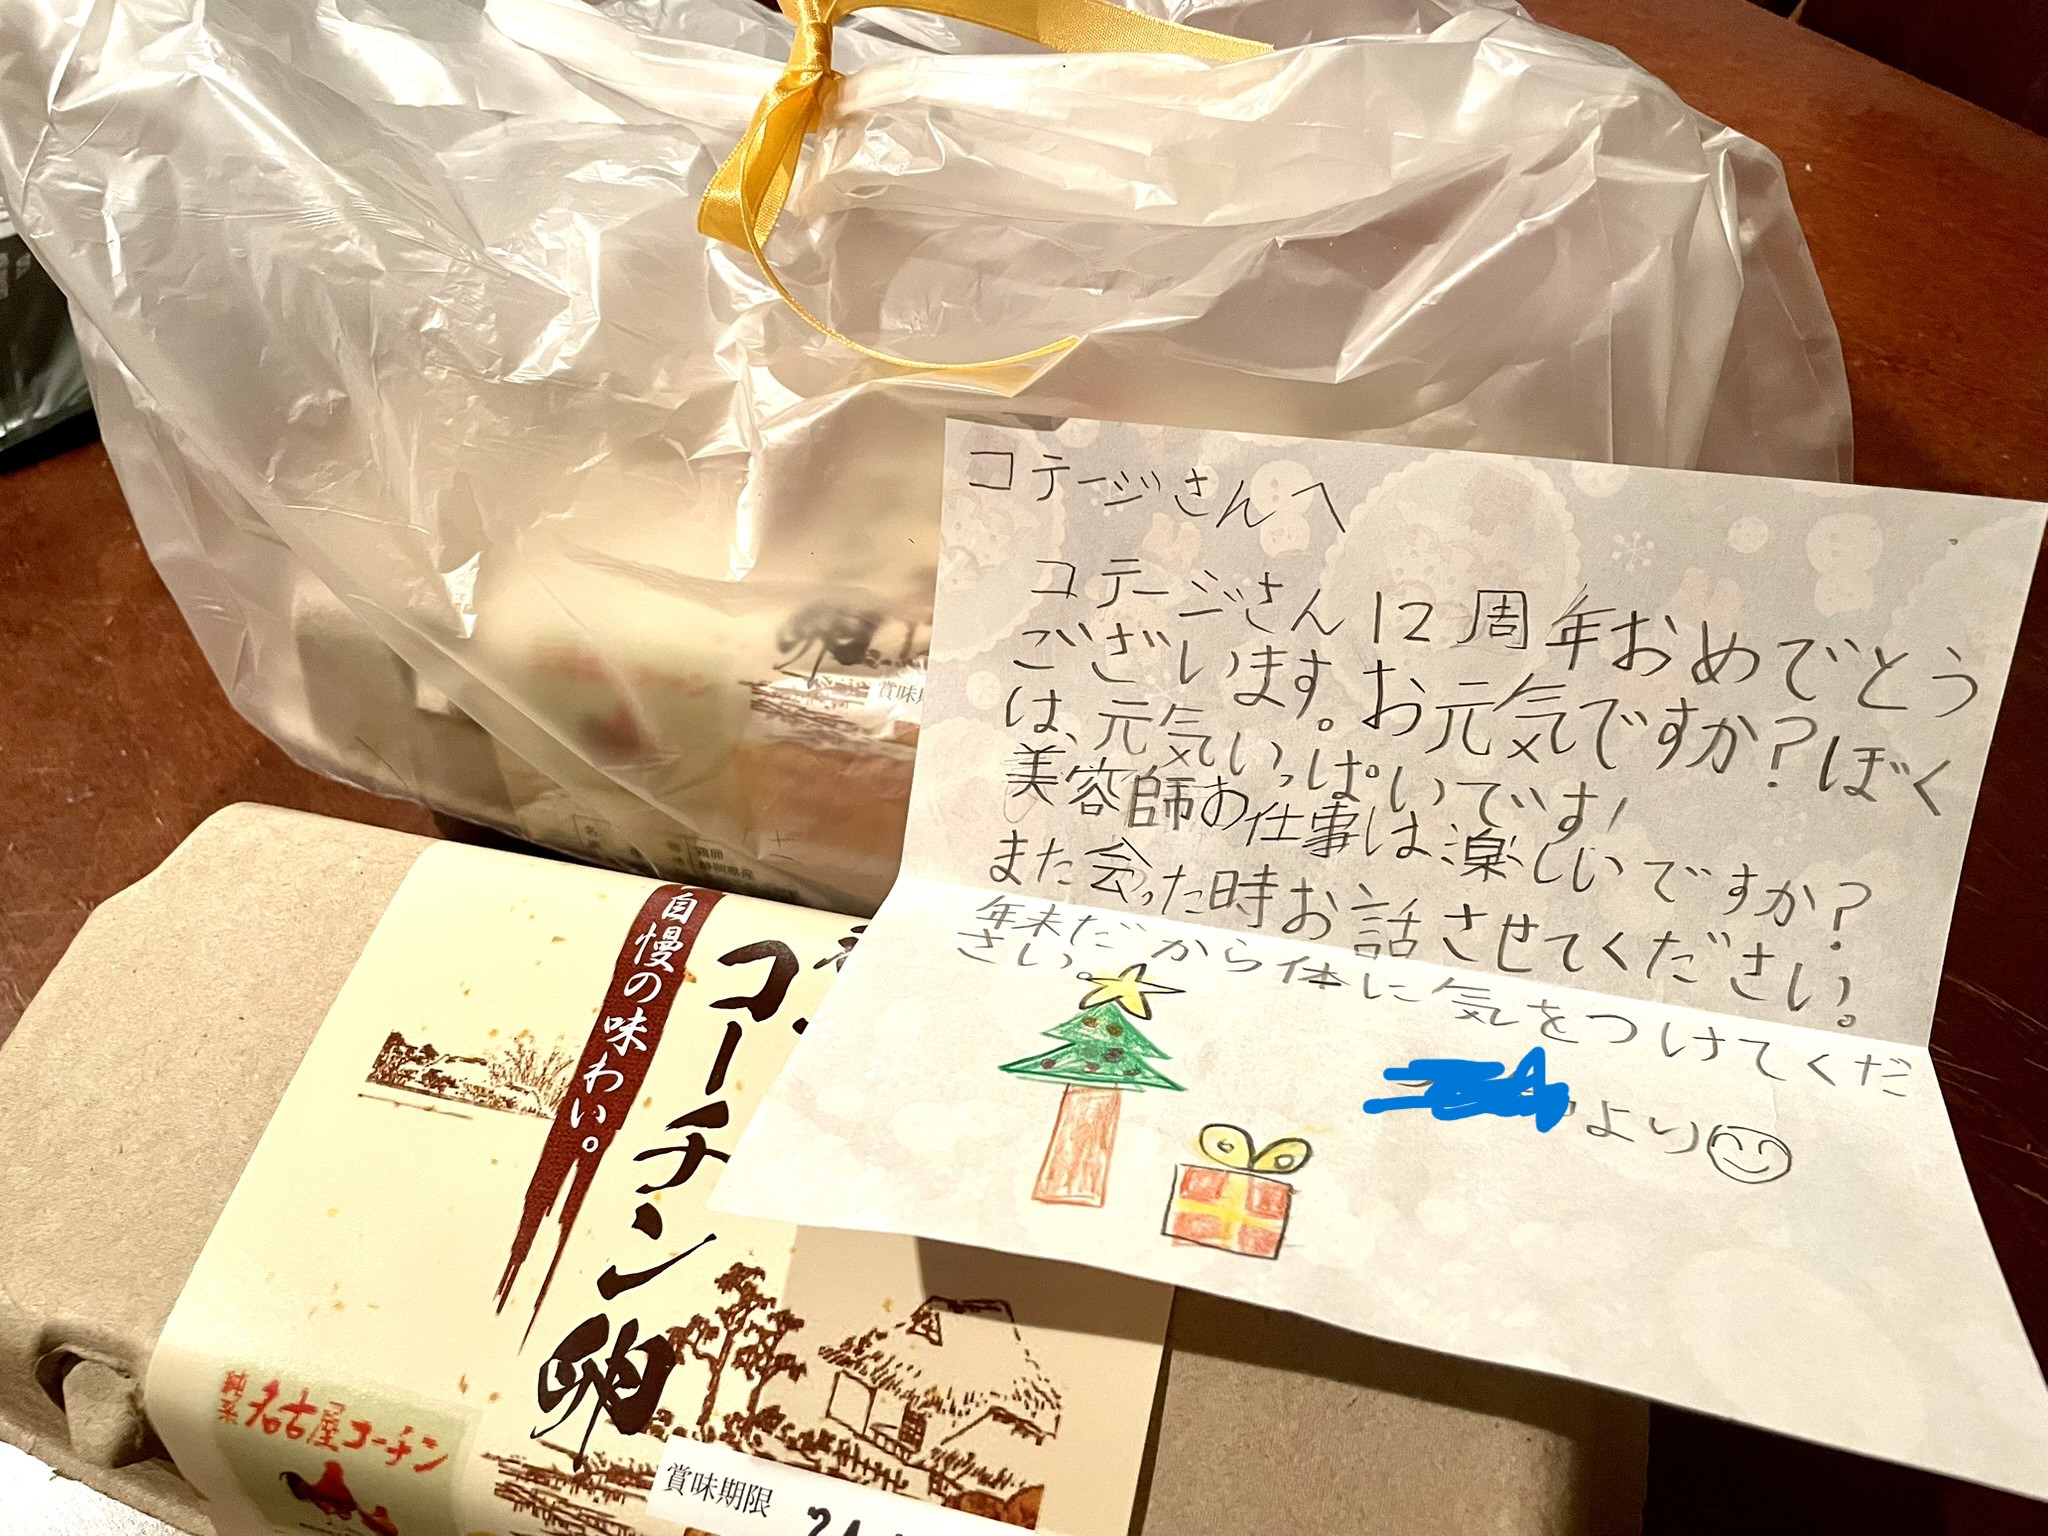 コテージさんへ
コテージさん12周年おめでとう
ございます。お元気ですか？ぼく
は、元気いっぱいです!
美容師お仕事は楽しいですか？
また会った時お話させてください。
年末だから体に気をつけてくだ
さい。
より
自慢の味わい。
コーチン
卵
純系
名古屋コーチン
賞味期限
賞味期
鶏卵
静岡県産